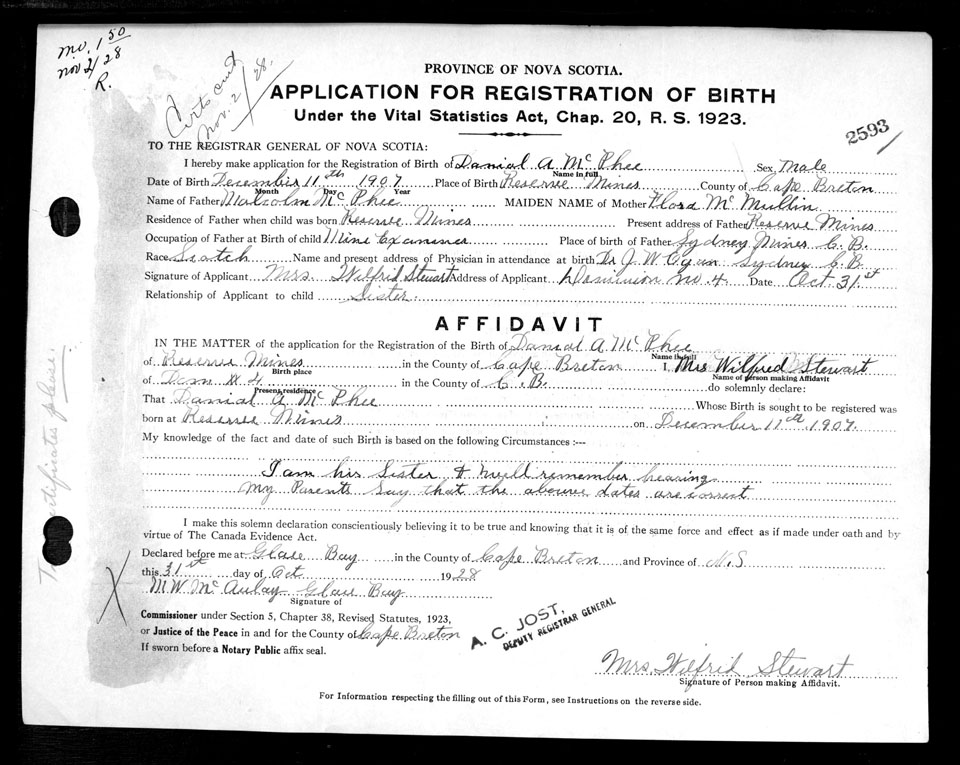 mo. 1 50
nov 2/28
R.
Certs out
Nov. 2/28.
PROVINCE OF NOVA SCOTIA.
APPLICATION FOR REGISTRATION OF BIRTH
Under the Vital Statistics Act, Chap. 20, R. S. 1923.
2593
TO THE REGISTRAR GENERAL OF NOVA SCOTIA:
I hereby make application for the Registration of Birth of Danial A McPhee Sex Male
Name in full
Date of Birth December 11th 1907 Place of Birth Reserve Mines County of Cape Breton
Month Day Year
Name of Father Malcolm McPhee MAIDEN NAME of Mother Flora McMullin
Residence of Father when child was born Reserve Mines Present address of Father Reserve Mines
Occupation of Father at Birth of child Mine Examiner Place of birth of Father Sydney Mines C.B.
Race Scotch Name and present address of Physician in attendance at birth Dr J. W. Sydney C.B.
Signature of Applicant Mrs. Wilfrid Stewart Address of Applicant Dominion No. 4 Date Oct. 31st
Relationship of Applicant to child Sister
AFFIDAVIT
IN THE MATTER of the application for the Registration of the Birth of Danial A McPhee
Name in full
of Reserve Mines in the County of Cape Breton I, Mrs Wilfred Stewart
Birth place Name of person making Affidavit
of Dom No 4 in the County of C.B. do solemnly declare:
Present residence
That Danial A McPhee Whose Birth is sought to be registered was
born at Reserve Mines on December 11th 1907.
My knowledge of the fact and date of such Birth is based on the following Circumstances :---
I am his Sister & well remember hearing
my Parents say that the above dates are correct
I make this solemn declaration conscientiously believing it to be true and knowing that it is of the same force and effect as if made under oath and by
virtue of The Canada Evidence Act.
Declared before me at Glace Bay in the County of Cape Breton and Province of N.S
this 31st day of Oct 1928
M W McAulay Glace Bay
Signature of
Commissioner under Section 5, Chapter 38, Revised Statutes, 1923,
or Justice of the Peace in and for the County of Cape Breton
If sworn before a Notary Public affix seal.
A. C. JOST,
DEPUTY REGISTRAR GENERAL
Mrs. Wilfrid Stewart
Signature of Person making Affidavit.
For Information respecting the filling out of this Form, see Instructions on the reverse side.
certificates please.
X